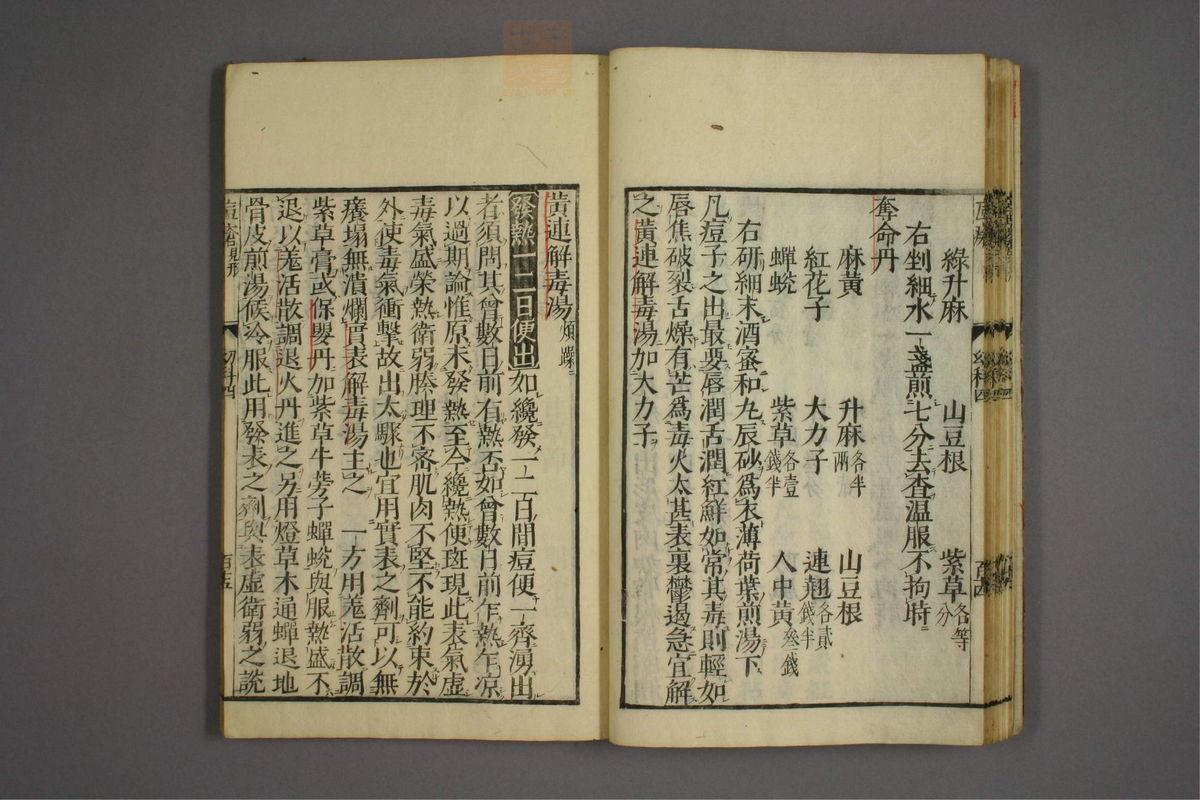 綠升麻 山豆根 紫草各等分
右剉細水一盞煎七分去査温服不拘時
奪命丹
麻黄 升麻各半兩 山豆根
紅花子 大力子 連翹各貳錢半
蟬蛻 紫草各壹錢半 人中黄叁錢
右研細末酒蜜和丸辰砂爲衣薄荷葉煎湯下
凡痘子之出最要唇潤舌潤紅鮮如常其毒則輕如
唇焦破裂舌燥有芒爲毒火太甚表裏欝遏急宜解
之黄連解毒湯加大力子
黄連解毒湯煩躁
發熱一二日便出如纔發一二日間痘便一齊湧出
者須問其曾數日前有熱否如曾數日前乍熱乍凉
以過期論惟原未發熱至今纔熱便斑現此表氣虚
毒氣盛榮熱衛弱腠理不密肌肉不堅不能約束於
外使毒氣衝擊故出太驟也宜用實表之劑可以無
癢塌無潰爛實表解毒湯主之 一方用羗活散調
紫草膏或保嬰丹加紫草牛蒡子蟬蛻與服熱盛不
退以羗活散調退火丹進之另用燈草木通蟬退地
骨皮煎湯候冷服此用發表之劑與表虚衛弱之説
幼科四
百五